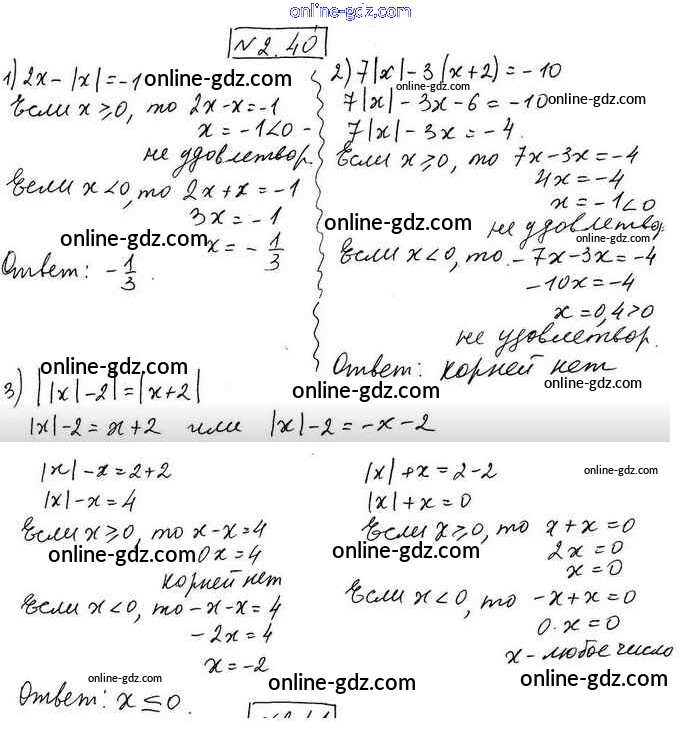 online-gdz.com
№ 2.40
1) 2x - |x| = -1
online-gdz.com
Если x ≥ 0, то 2x - x = -1
x = -1 < 0 -
не удовлетвор.
Если x < 0, то 2x + x = -1
3x = -1
online-gdz.com
x = - 1/3
Ответ: - 1/3.
2) 7|x| - 3(x+2) = -10
online-gdz.com
7|x| - 3x - 6 = -10
online-gdz.com
7|x| - 3x = -4.
Если x ≥ 0, то 7x - 3x = -4
online-gdz.com
4x = -4
x = -1 < 0
online-gdz.com
не удовлетвор.
online-gdz.com
Если x < 0, то -7x - 3x = -4
-10x = -4
x = 0,4 > 0
не удовлетвор.
online-gdz.com
Ответ: корней нет
online-gdz.com
online-gdz.com
online-gdz.com
3) ||x| - 2| = |x + 2|
|x| - 2 = x + 2 или |x| - 2 = -x - 2
|x| - x = 2 + 2
|x| - x = 4
Если x ≥ 0, то x - x = 4
online-gdz.com
0x = 4
корней нет
Если x < 0, то -x - x = 4
-2x = 4
x = -2
|x| + x = 2 - 2
online-gdz.com
|x| + x = 0
Если x ≥ 0, то x + x = 0
online-gdz.com
2x = 0
x = 0
Если x < 0, то -x + x = 0
0·x = 0
x - любое число
online-gdz.com
online-gdz.com
online-gdz.com
Ответ: x ≤ 0.